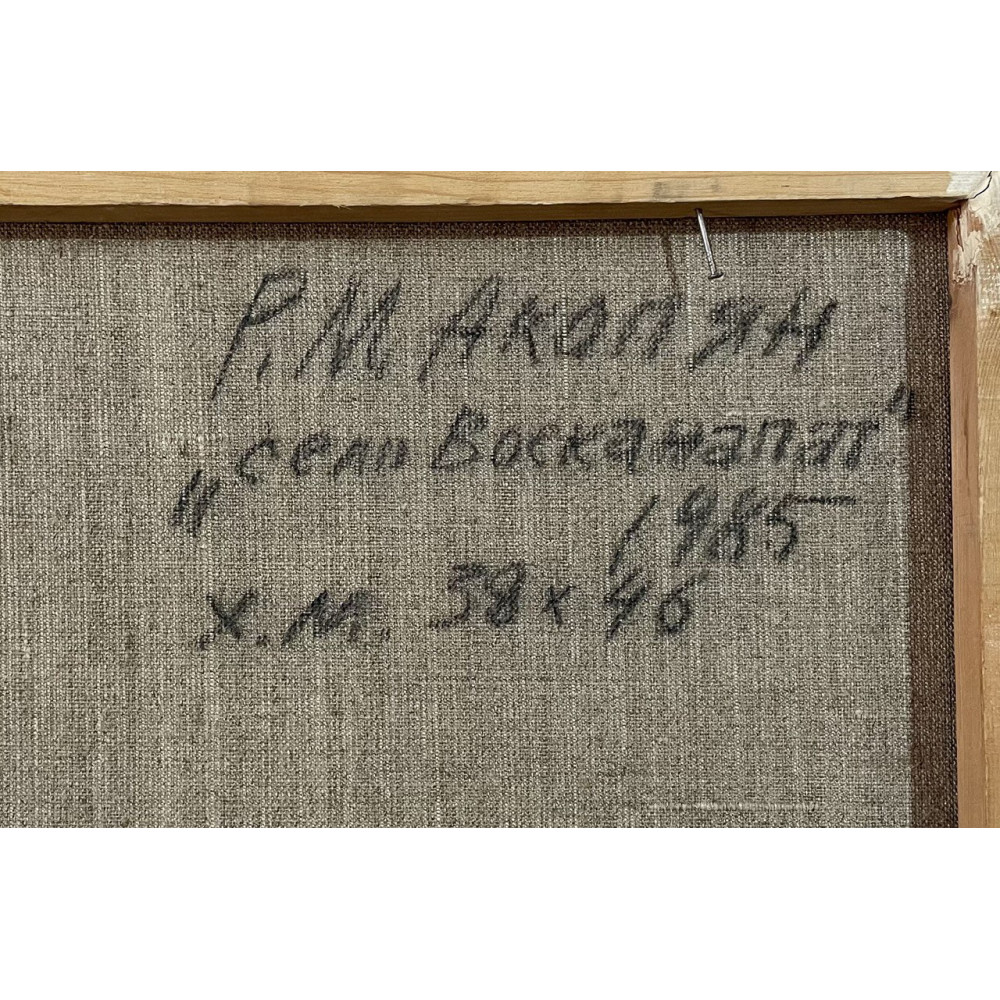 Р. М Акопян
„село Восканапат"
1985
х. м. 38 х 46